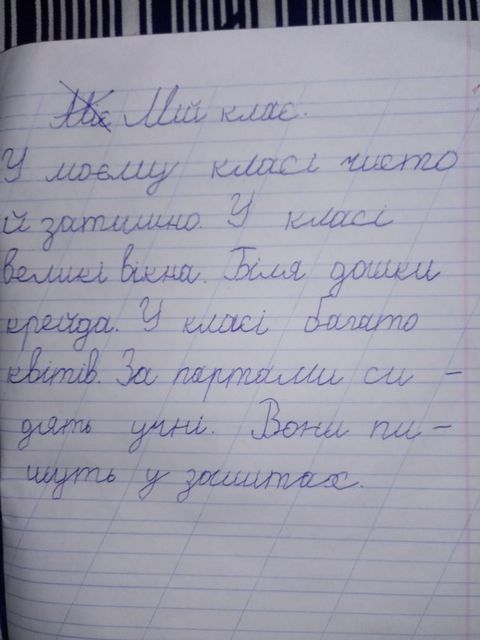 Мій клас.
У моєму класі чисто
й затишно. У класі
великі вікна. Біля дошки
крейда. У класі багато
квітів. За партами си -
дять учні. Вони пи -
шуть у зошитах.